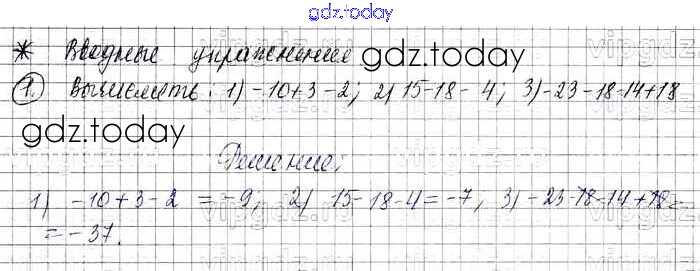 gdz.today
* Вводные упражнения gdz.today
1. Вычислить: 1) -10+3-2; 2) 15-18-4; 3) -23-18-14+18
gdz.today
Решение:
1) -10+3-2 = -9; 2) 15-18-4 = -7; 3) -23-18-14+18=
= -37.